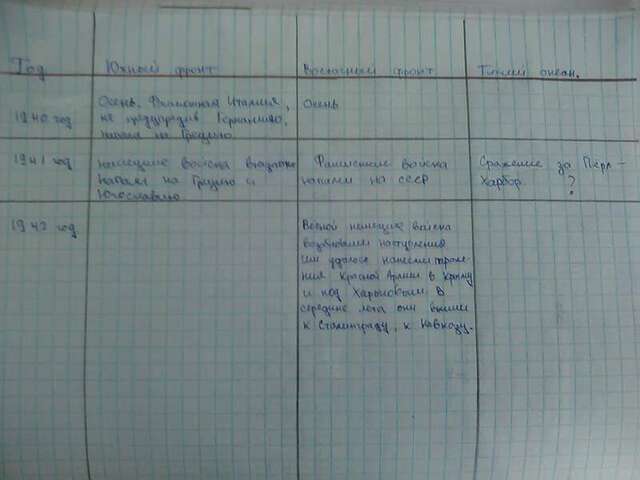 Год
Южный фронт
Восточный фронт
Тихий океан.
1940 год
Осень. Фашистская Италия,
не предупредив Германию,
напала на Грецию.
Осень
1941 год
немецкие войска
напали на Грецию и
Югославию
Фашистские войска
напали на СССР
Сражение за Перл-
Харбор
?
1942 год
Весной немецкие войска
возобновили наступления
им удалось нанести
Красной Армии в Крыму
и под Харьковым. В
середине лета они вышли
к Сталинграду, к Кавказу.